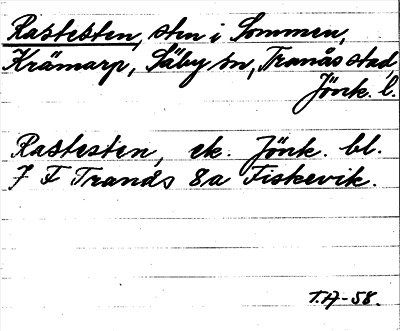 Rastesten, sten i Sommen,
Krämarp, Säby sn, Tranås stad,
Jönk. l.
Rastesten, ek. Jönk. bl.
7 F Tranås 8a Fiskevik.
T.A-58.